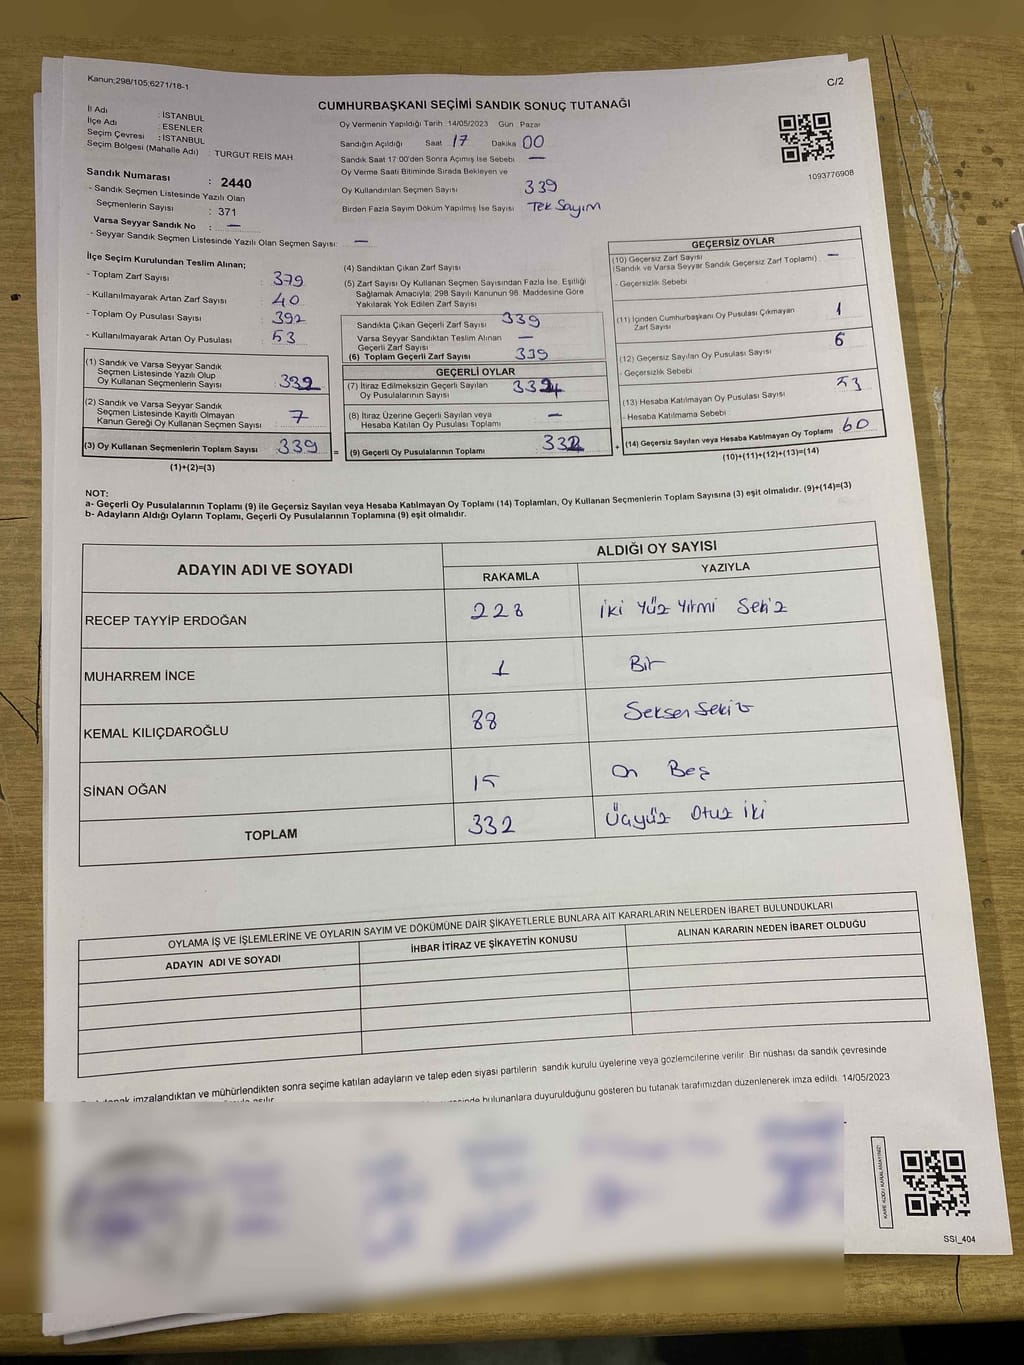 Kanun;298/105;6271/18-1
C/2
CUMHURBAŞKANI SEÇİMİ SANDIK SONUÇ TUTANAĞI
İl Adı : İSTANBUL
İlçe Adı : ESENLER
Seçim Çevresi : İSTANBUL
Seçim Bölgesi (Mahalle Adı) : TURGUT REİS MAH.
Sandık Numarası : 2440
- Sandık Seçmen Listesinde Yazılı Olan
Seçmenlerin Sayısı : 371
Varsa Seyyar Sandık No : —
- Seyyar Sandık Seçmen Listesinde Yazılı Olan Seçmen Sayısı: —
Oy Vermenin Yapıldığı Tarih 14/05/2023 Gün Pazar
Sandığın Açıldığı Saat 17 Dakika 00
Sandık Saat 17:00'den Sonra Açımış İse Sebebi —
Oy Verme Saati Bitiminde Sırada Bekleyen ve
Oy Kullandırılan Seçmen Sayısı 339
Birden Fazla Sayım Döküm Yapılmış İse Sayısı Tek Sayım
1093776908
İlçe Seçim Kurulundan Teslim Alınan;
- Toplam Zarf Sayısı : 379
- Kullanılmayarak Artan Zarf Sayısı : 40
- Toplam Oy Pusulası Sayısı : 392
- Kullanılmayarak Artan Oy Pusulası : 53
(1) Sandık ve Varsa Seyyar Sandık
Seçmen Listesinde Yazılı Olup
Oy Kullanan Seçmenlerin Sayısı : 332
(2) Sandık ve Varsa Seyyar Sandık
Seçmen Listesinde Kayıtlı Olmayan
Kanun Gereği Oy Kullanan Seçmen Sayısı : 7
(3) Oy Kullanan Seçmenlerin Toplam Sayısı : 339
(1)+(2)=(3)
(4) Sandıktan Çıkan Zarf Sayısı
(5) Zarf Sayısı Oy Kullanan Seçmen Sayısından Fazla İse, Eşitliği
Sağlamak Amacıyla; 298 Sayılı Kanunun 98. Maddesine Göre
Yakılarak Yok Edilen Zarf Sayısı
Sandıkta Çıkan Geçerli Zarf Sayısı 339
Varsa Seyyar Sandıktan Teslim Alınan
Geçerli Zarf Sayısı —
(6) Toplam Geçerli Zarf Sayısı 339
GEÇERLİ OYLAR
(7) İtiraz Edilmeksizin Geçerli Sayılan
Oy Pusulalarının Sayısı :
(8) İtiraz Üzerine Geçerli Sayılan veya
Hesaba Katılan Oy Pusulası Toplamı —
= (9) Geçerli Oy Pusulalarının Toplamı 332
GEÇERSİZ OYLAR
(10) Geçersiz Zarf Sayısı
(Sandık ve Varsa Seyyar Sandık Geçersiz Zarf Toplamı) —
- Geçersizlik Sebebi
(11) İçinden Cumhurbaşkanı Oy Pusulası Çıkmayan
Zarf Sayısı 1
(12) Geçersiz Sayılan Oy Pusulası Sayısı 6
- Geçersizlik Sebebi
(13) Hesaba Katılmayan Oy Pusulası Sayısı 53
- Hesaba Katılmama Sebebi
+ (14) Geçersiz Sayılan veya Hesaba Katılmayan Oy Toplamı 60
(10)+(11)+(12)+(13)=(14)
NOT:
a- Geçerli Oy Pusulalarının Toplamı (9) ile Geçersiz Sayılan veya Hesaba Katılmayan Oy Toplamı (14) Toplamları, Oy Kullanan Seçmenlerin Toplam Sayısına (3) eşit olmalıdır. (9)+(14)=(3)
b- Adayların Aldığı Oyların Toplamı, Geçerli Oy Pusulalarının Toplamına (9) eşit olmalıdır.
ADAYIN ADI VE SOYADI ALDIĞI OY SAYISI
RAKAMLA YAZIYLA
RECEP TAYYİP ERDOĞAN 228 İki Yüz Yirmi Sekiz
MUHARREM İNCE 1 Bir
KEMAL KILIÇDAROĞLU 88 Seksen Sekiz
SİNAN OĞAN 15 On Beş
TOPLAM 332 Üçyüz Otuz İki
OYLAMA İŞ VE İŞLEMLERİNE VE OYLARIN SAYIM VE DÖKÜMÜNE DAİR ŞİKAYETLERLE BUNLARA AİT KARARLARIN NELERDEN İBARET BULUNDUKLARI
ADAYIN ADI VE SOYADI İHBAR İTİRAZ VE ŞİKAYETİN KONUSU ALINAN KARARIN NEDEN İBARET OLDUĞU
imzalandıktan ve mühürlendikten sonra seçime katılan adayların ve talep eden siyasi partilerin sandık kurulu üyelerine veya gözlemcilerine verilir. Bir nüshası da sandık çevresinde
bulunanlara duyurulduğunu gösteren bu tutanak tarafımızdan düzenlenerek imza edildi. 14/05/2023
KARE KODU KARALAMAYINIZ!
SSI_404